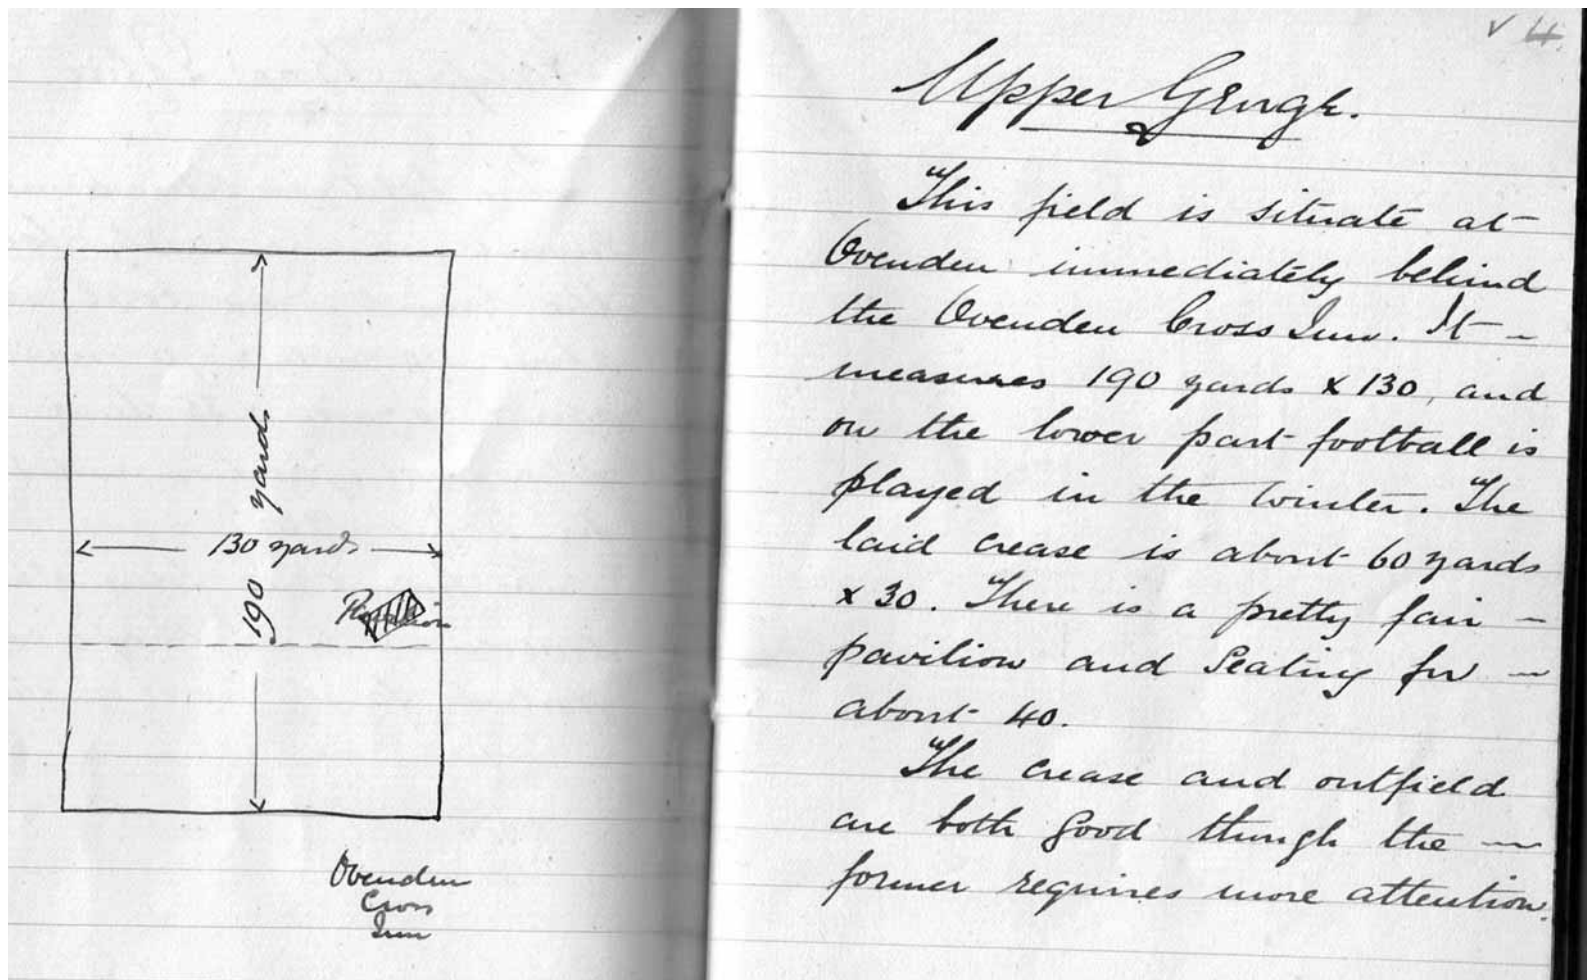 190 yards
130 yards
Pavilion
Ovenden
Cross
Inn
✓ 4.
Upper Gengh.
This field is situate at
Ovenden immediately behind
the Ovenden Cross Inn. It
measures 190 yards x 130, and
on the lower part football is
played in the winter. The
laid crease is about 60 yards
x 30. There is a pretty fair
pavilion and seating for
about 40.
The crease and outfield
are both good though the
former requires more attention.